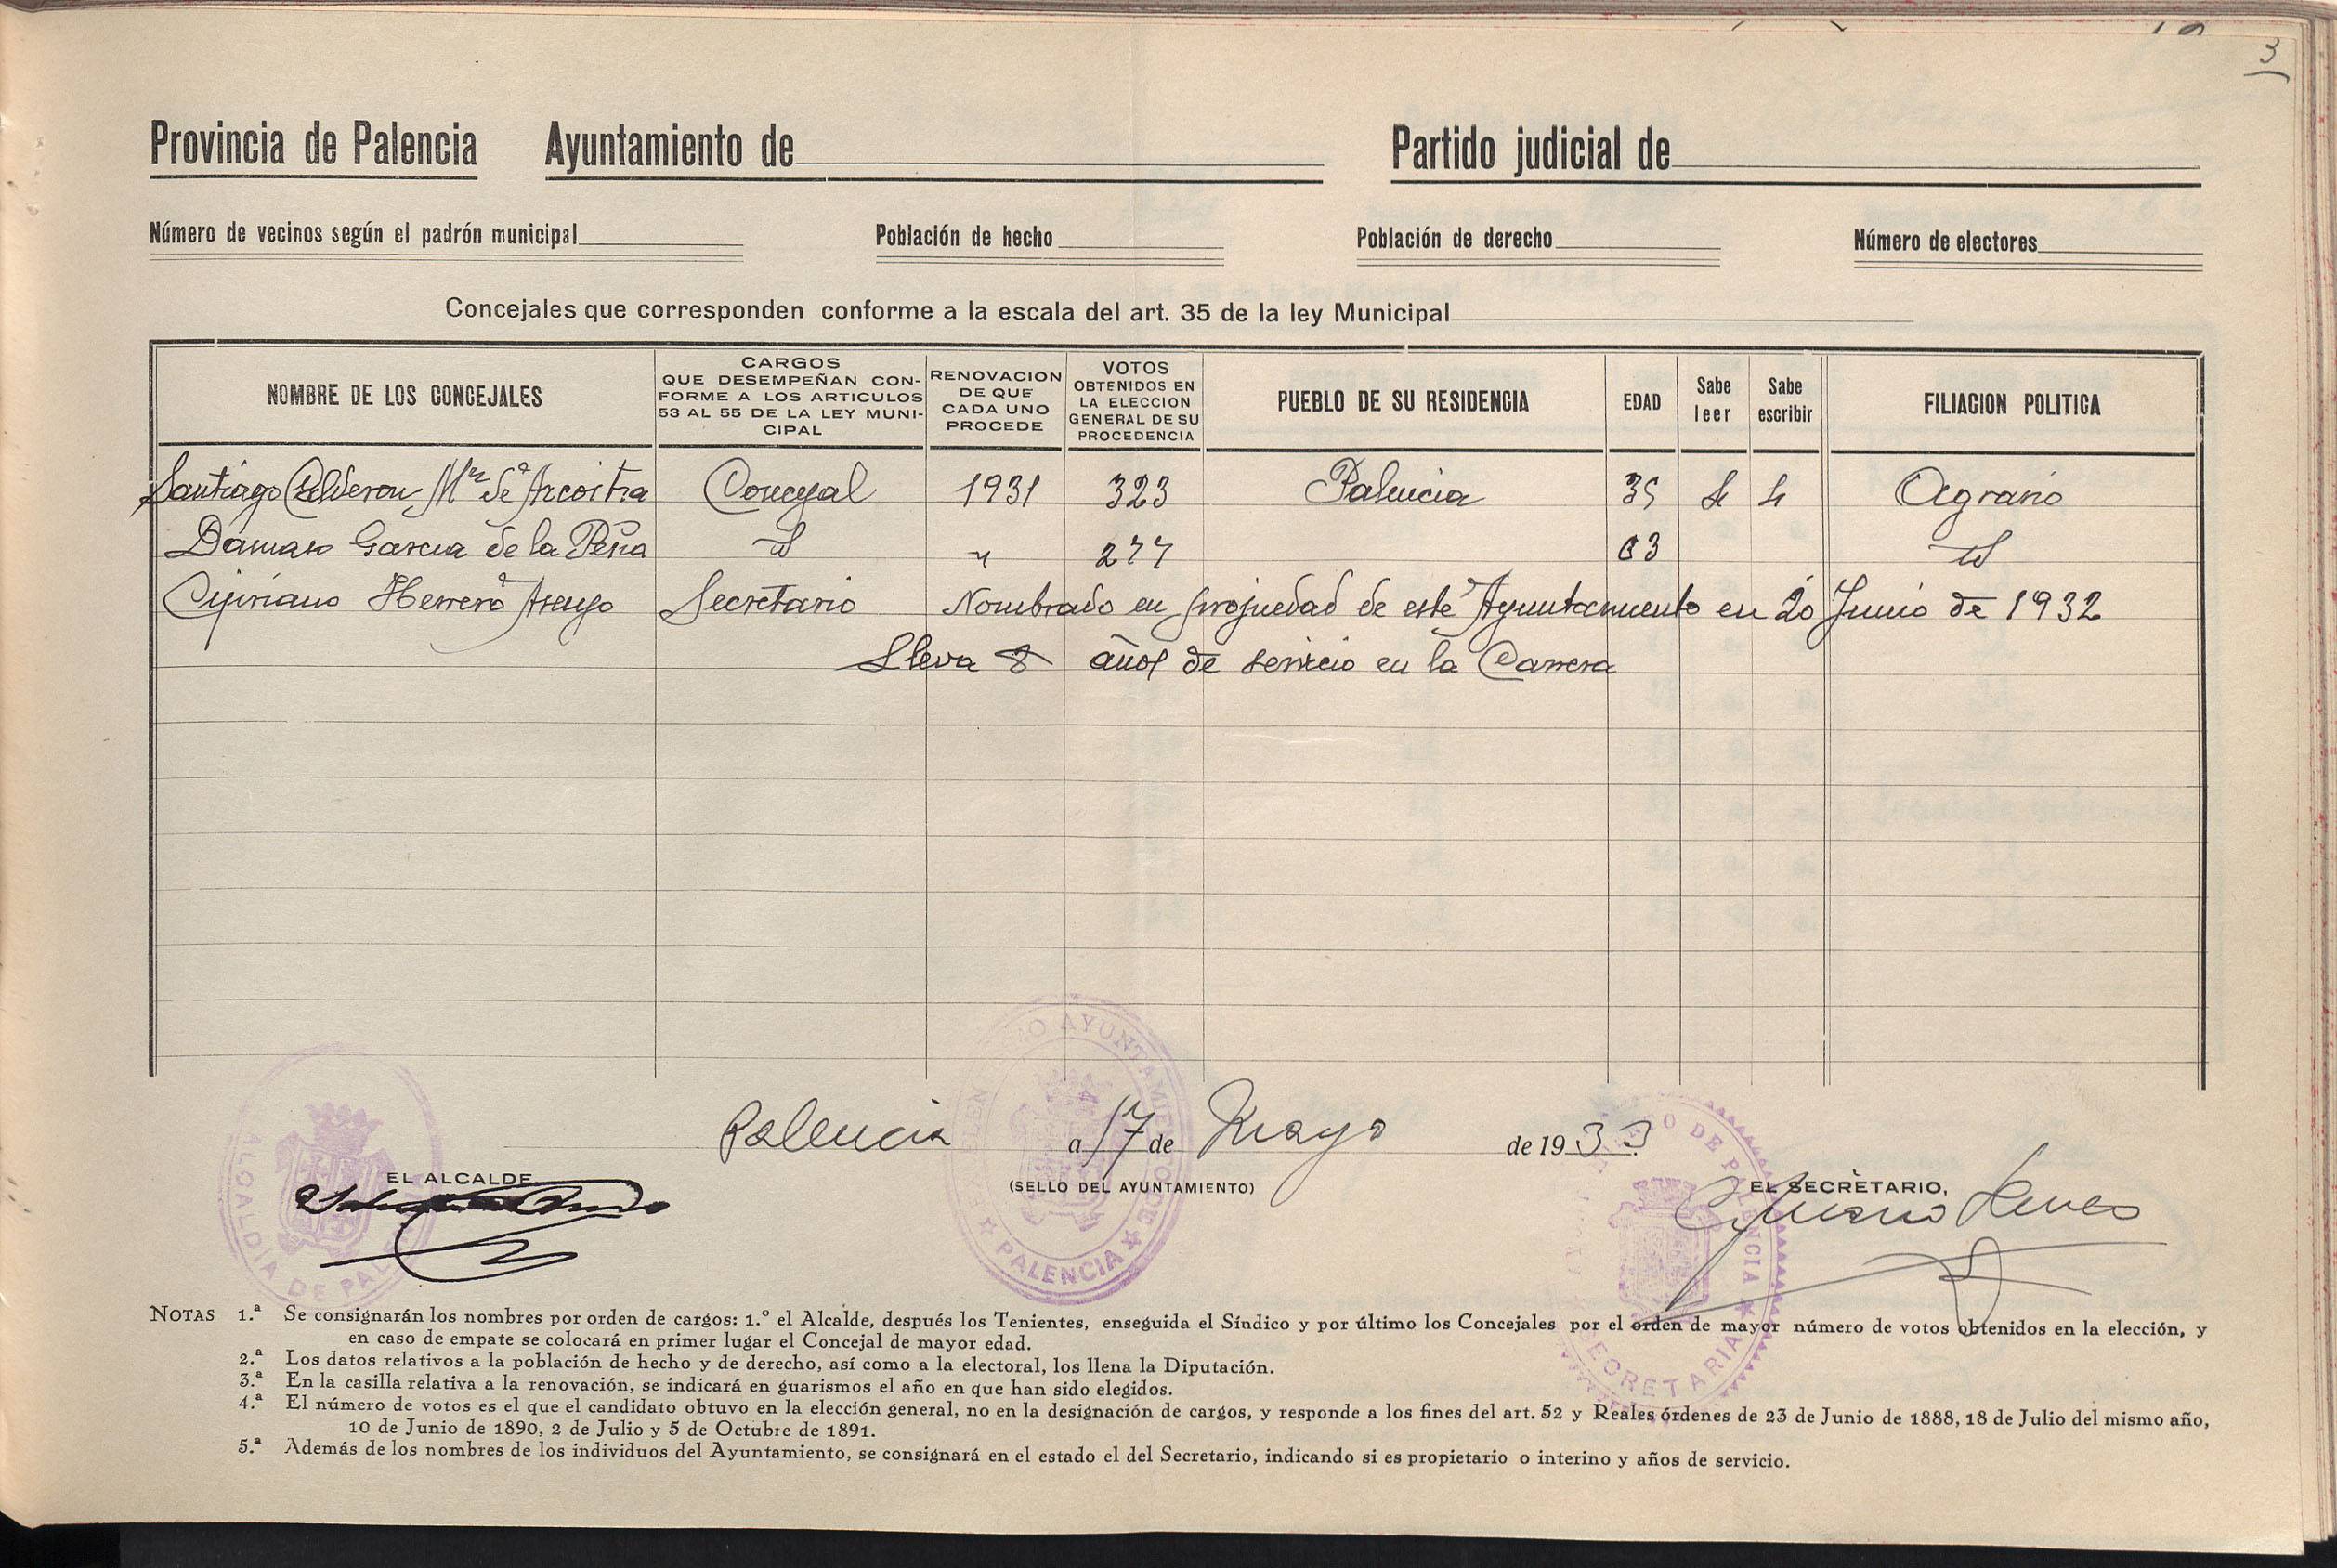 3
Provincia de Palencia Ayuntamiento de Partido judicial de
Número de vecinos según el padrón municipal Población de hecho Población de derecho Número de electores
Concejales que corresponden conforme a la escala del art. 35 de la ley Municipal
NOMBRE DE LOS CONCEJALES
CARGOS
QUE DESEMPEÑAN CON-
FORME A LOS ARTICULOS
53 AL 55 DE LA LEY MUNI-
CIPAL
RENOVACION
DE QUE
CADA UNO
PROCEDE
VOTOS
OBTENIDOS EN
LA ELECCION
GENERAL DE SU
PROCEDENCIA
PUEBLO DE SU RESIDENCIA
EDAD
Sabe
leer
Sabe
escribir
FILIACION POLITICA
Santiago Calderon Mnz de Azcoitia Concejal 1931 323 Palencia 35 Agrario
Damaso Garcia de la Peña id " 277 63 id
Cipriano Herrero Concejal Secretario Nombrado en propiedad de este Ayuntamiento en 20 Junio de 1932
Lleva 8 años de servicio en la Carrera
Palencia a 17 de Mayo de 1933
EL ALCALDE
(SELLO DEL AYUNTAMIENTO)
EL SECRETARIO,
ALCALDÍA DE PALENCIA
AYUNTAMIENTO DE
★ PALENCIA ★
DE PALENCIA ★
SECRETARIA
NOTAS 1.ª Se consignarán los nombres por orden de cargos: 1.º el Alcalde, después los Tenientes, enseguida el Síndico y por último los Concejales por el orden de mayor número de votos obtenidos en la elección, y
en caso de empate se colocará en primer lugar el Concejal de mayor edad.
2.ª Los datos relativos a la población de hecho y de derecho, así como a la electoral, los llena la Diputación.
3.ª En la casilla relativa a la renovación, se indicará en guarismos el año en que han sido elegidos.
4.ª El número de votos es el que el candidato obtuvo en la elección general, no en la designación de cargos, y responde a los fines del art. 52 y Reales órdenes de 23 de Junio de 1888, 18 de Julio del mismo año,
10 de Junio de 1890, 2 de Julio y 5 de Octubre de 1891.
5.ª Además de los nombres de los individuos del Ayuntamiento, se consignará en el estado el del Secretario, indicando si es propietario o interino y años de servicio.